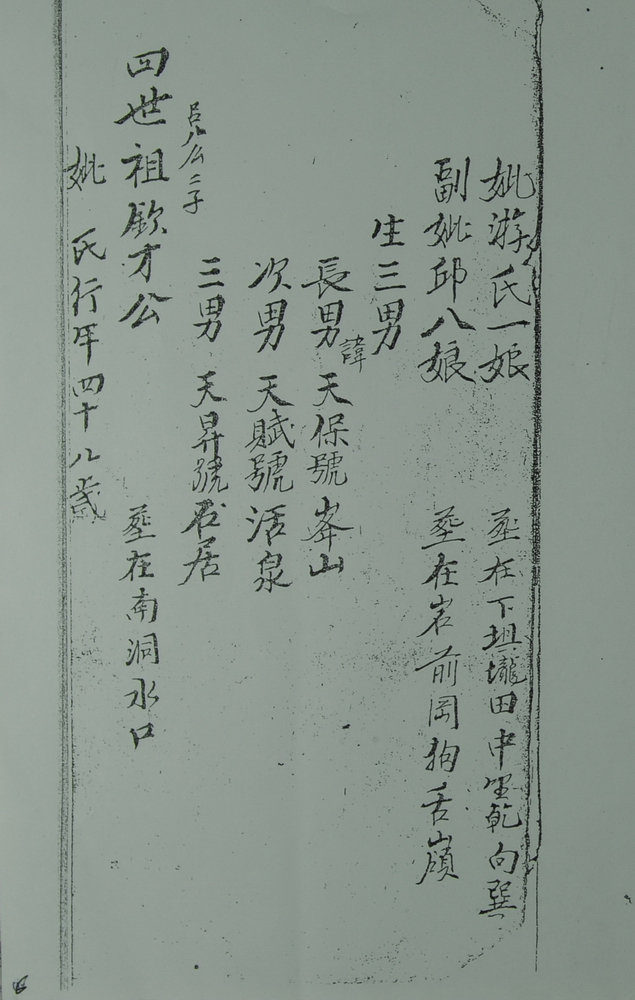 妣游氏一娘 葬在下垻壠田中坐乾向巽
副妣邱八娘 葬在岩前岡狗舌嶺
生三男
長男諱天保號峯山
次男 天賦號活泉
三男 天昇號居
八公二子
四世祖欽才公 葬在南洞水口
妣 氏行年四十八歲